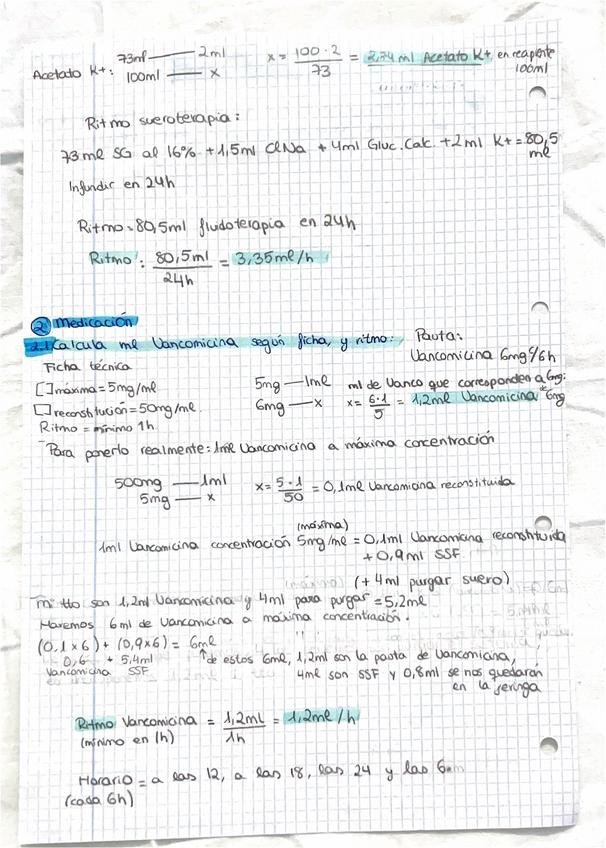 Acetato K+: 73ml — 2ml x = 100·2 / 73 = 2,74 ml Acetato K+ en reaponte
100ml — x 100ml
Ritmo sueroterapia:
73ml SG al 16% + 1,5ml ClNa + 4ml Gluc.Calc. + 2ml K+ = 80,5
ml
Infundir en 24h
Ritmo = 80,5ml fludoterapia en 24h
Ritmo: 80,5ml / 24h = 3,35ml/h
2. Medicación
2.1 Calcula ml Vancomicina según ficha, y ritmo: Pauta:
Vancomicina 6mg c/6h
Ficha técnica
[ ] máxima = 5mg/ml 5mg — 1ml ml de Vanco que corresponden a 6mg:
[ ] reconstitución = 50mg/ml. 6mg — x x = 6·1 / 5 = 1,2ml Vancomicina de 6mg
Ritmo = mínimo 1h
Para ponerlo realmente: 1ml Vancomicina a máxima concentración
500mg — 1ml x = 5·1 / 50 = 0,1ml Vancomicina reconstituida
5mg — x
(máxima)
1ml Vancomicina concentración 5mg/ml = 0,1ml Vancomicina reconstituida
+ 0,9ml SSF.
(+ 4ml purgar suero)
mi tto son 1,2ml Vancomicina y 4ml para purgar = 5,2ml
Haremos 6ml de Vancomicina a máxima concentración.
(0,1 x 6) + (0,9 x 6) = 6ml
0,6 + 5,4ml ↑ de estos 6ml, 1,2ml son la pauta de Vancomicina,
Vancomicina SSF 4ml son SSF y 0,8ml se nos quedarán
en la jeringa
Ritmo Vancomicina = 1,2ml / 1h = 1,2ml/h
(mínimo en 1h)
Horario = a las 12, a las 18, las 24 y las 6
(cada 6h)